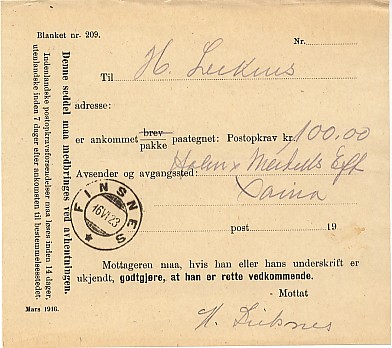 Blanket nr. 209.
Nr.
Til H.
adresse:
er ankommet brev pakke paategnet: Postopkrav kr. 100.00
Avsender og avgangssted: Holm
post 19
FINSNES
16 VI 23
Mottageren maa, hvis han eller hans underskrift er
ukjendt, godtgjøre, at han er rette vedkommende.
Mottat
H.
Denne seddel maa medbringes ved avhentningen.
Indenlandske postopkravsforsendelser maa løses inden 14 dager,
utenlandske inden 7 dager efter ankomsten til bestemmelsesstedet.
Mars 1916.